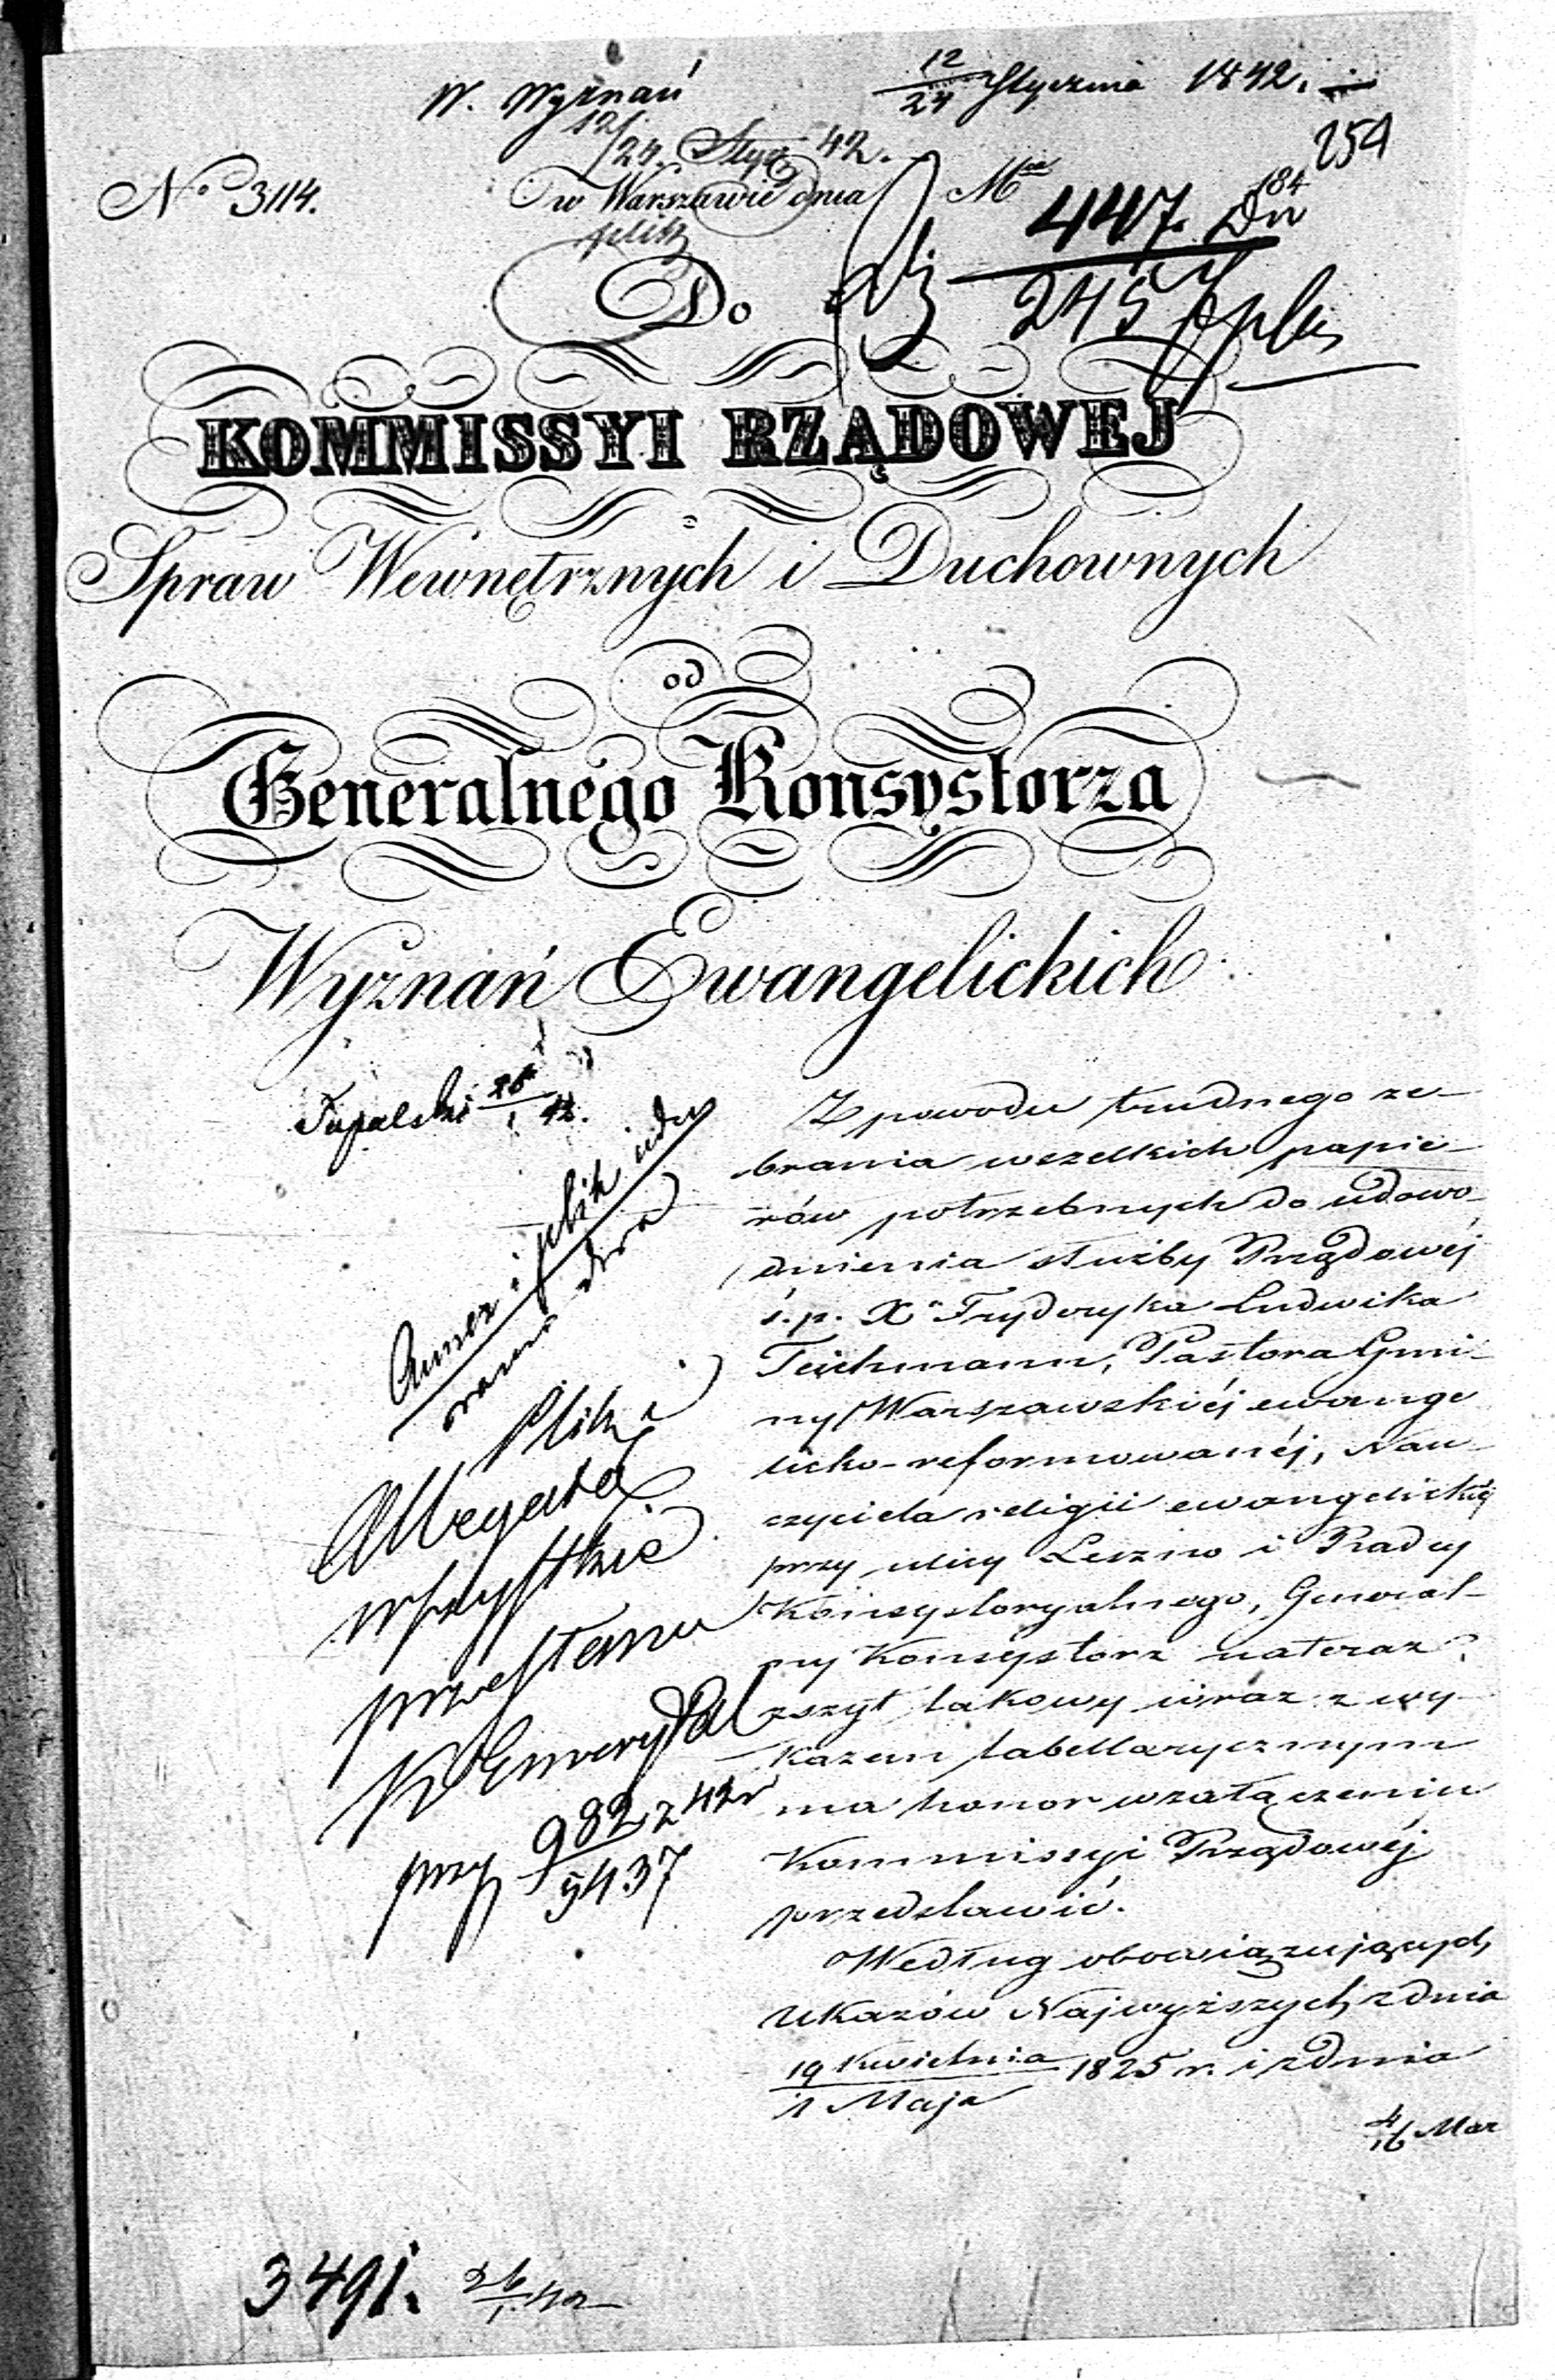 W. Wyznań
12/24 Stycznia 1842.
12/24. Stycz 42.
254
No 3114.
w Warszawie dnia
184
447. Dn
plik
Do
245
KOMMISSYI RZĄDOWEJ
Spraw Wewnętrznych i Duchownych
od
Generalnego Konsystorza
Wyznań Ewangelickich
Tupalski 26/1 42.
Z powodu trudnego ze-
brania wszelkich papie-
rów potrzebnych do udowo-
dnienia służby Rządowéj
ś.p. Xa Fryderyka Ludwika
Teichmann, Pastora Gmi-
ny Warszawskiéj ewange
licko-reformowanéj, Nau-
czyciela religii ewangelickiéj
przy ulicy Leszno i Radcy
Konsystoryalnego, General-
ny Konsystorz nateraz
zszyt takowy wraz z wy-
kazem tabellarycznym
ma honor w załączeniu
Kommissyi Rządowéj
przedstawić.
Według obowiązujących
Ukazów Najwyższych z dnia
19 Kwietnia/1 Maja 1825 r. i z dnia
4/16 Mar
Annex i plik
Plik i
Allegata
wszystkie
przesłano
K. Emeryt
przy 982/5437 z 42r
3491. 26/1 42